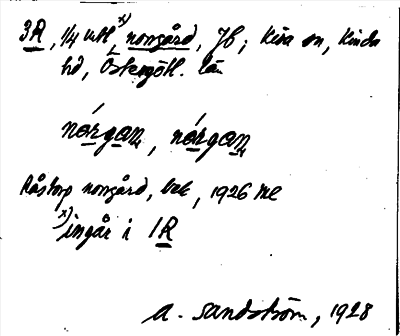 3R, 1/4 utH x), norrgård, Jb; Kisa sn, Kinda
hd, Östergötl. län
nórgan, nórgan
Råstorp norrgård, bek, 1926 me
x) ingår i 1R
A. Sandström, 1928